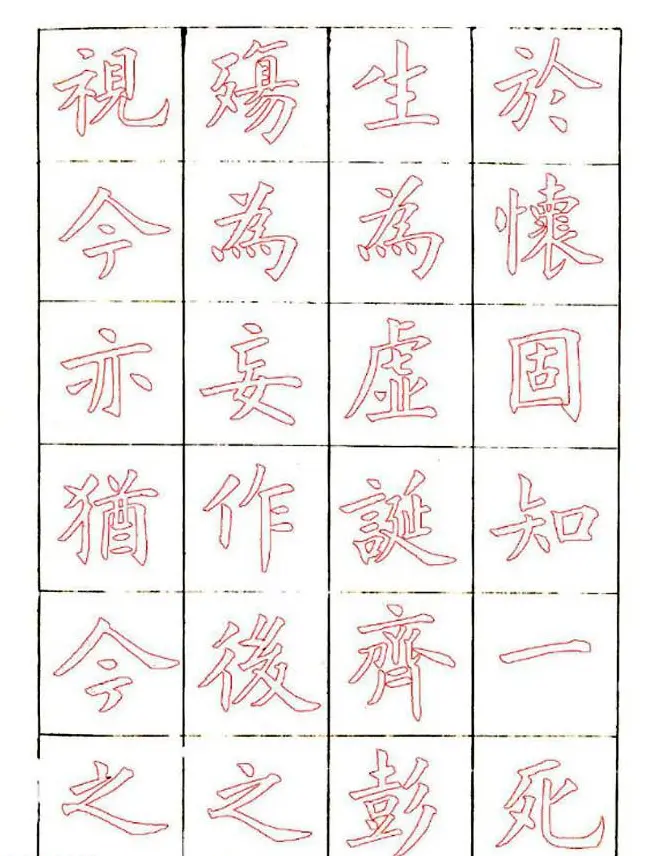 於懷固知一死
生為虛誕齊彭
殤為妄作後之
視今亦猶今之